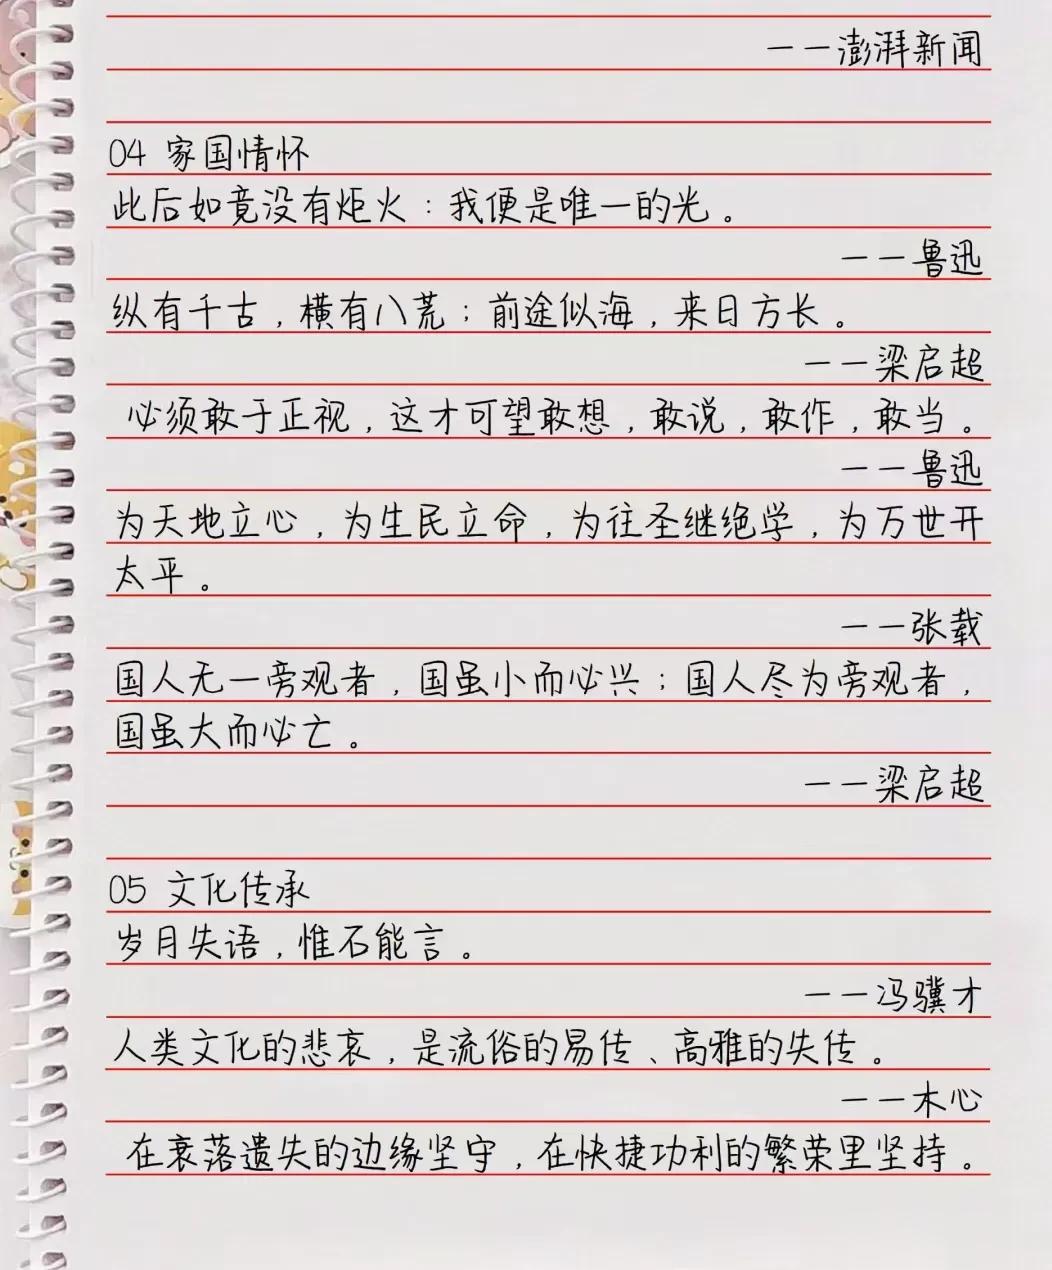 ——澎湃新闻
04 家国情怀
此后如竟没有炬火：我便是唯一的光。
——鲁迅
纵有千古，横有八荒；前途似海，来日方长。
——梁启超
必须敢于正视，这才可望敢想，敢说，敢作，敢当。
——鲁迅
为天地立心，为生民立命，为往圣继绝学，为万世开
太平。
——张载
国人无一旁观者，国虽小而必兴；国人尽为旁观者，
国虽大而必亡。
——梁启超
05 文化传承
岁月失语，惟石能言。
——冯骥才
人类文化的悲哀，是流俗的易传、高雅的失传。
——木心
在衰落遗失的边缘坚守，在快捷功利的繁荣里坚持。